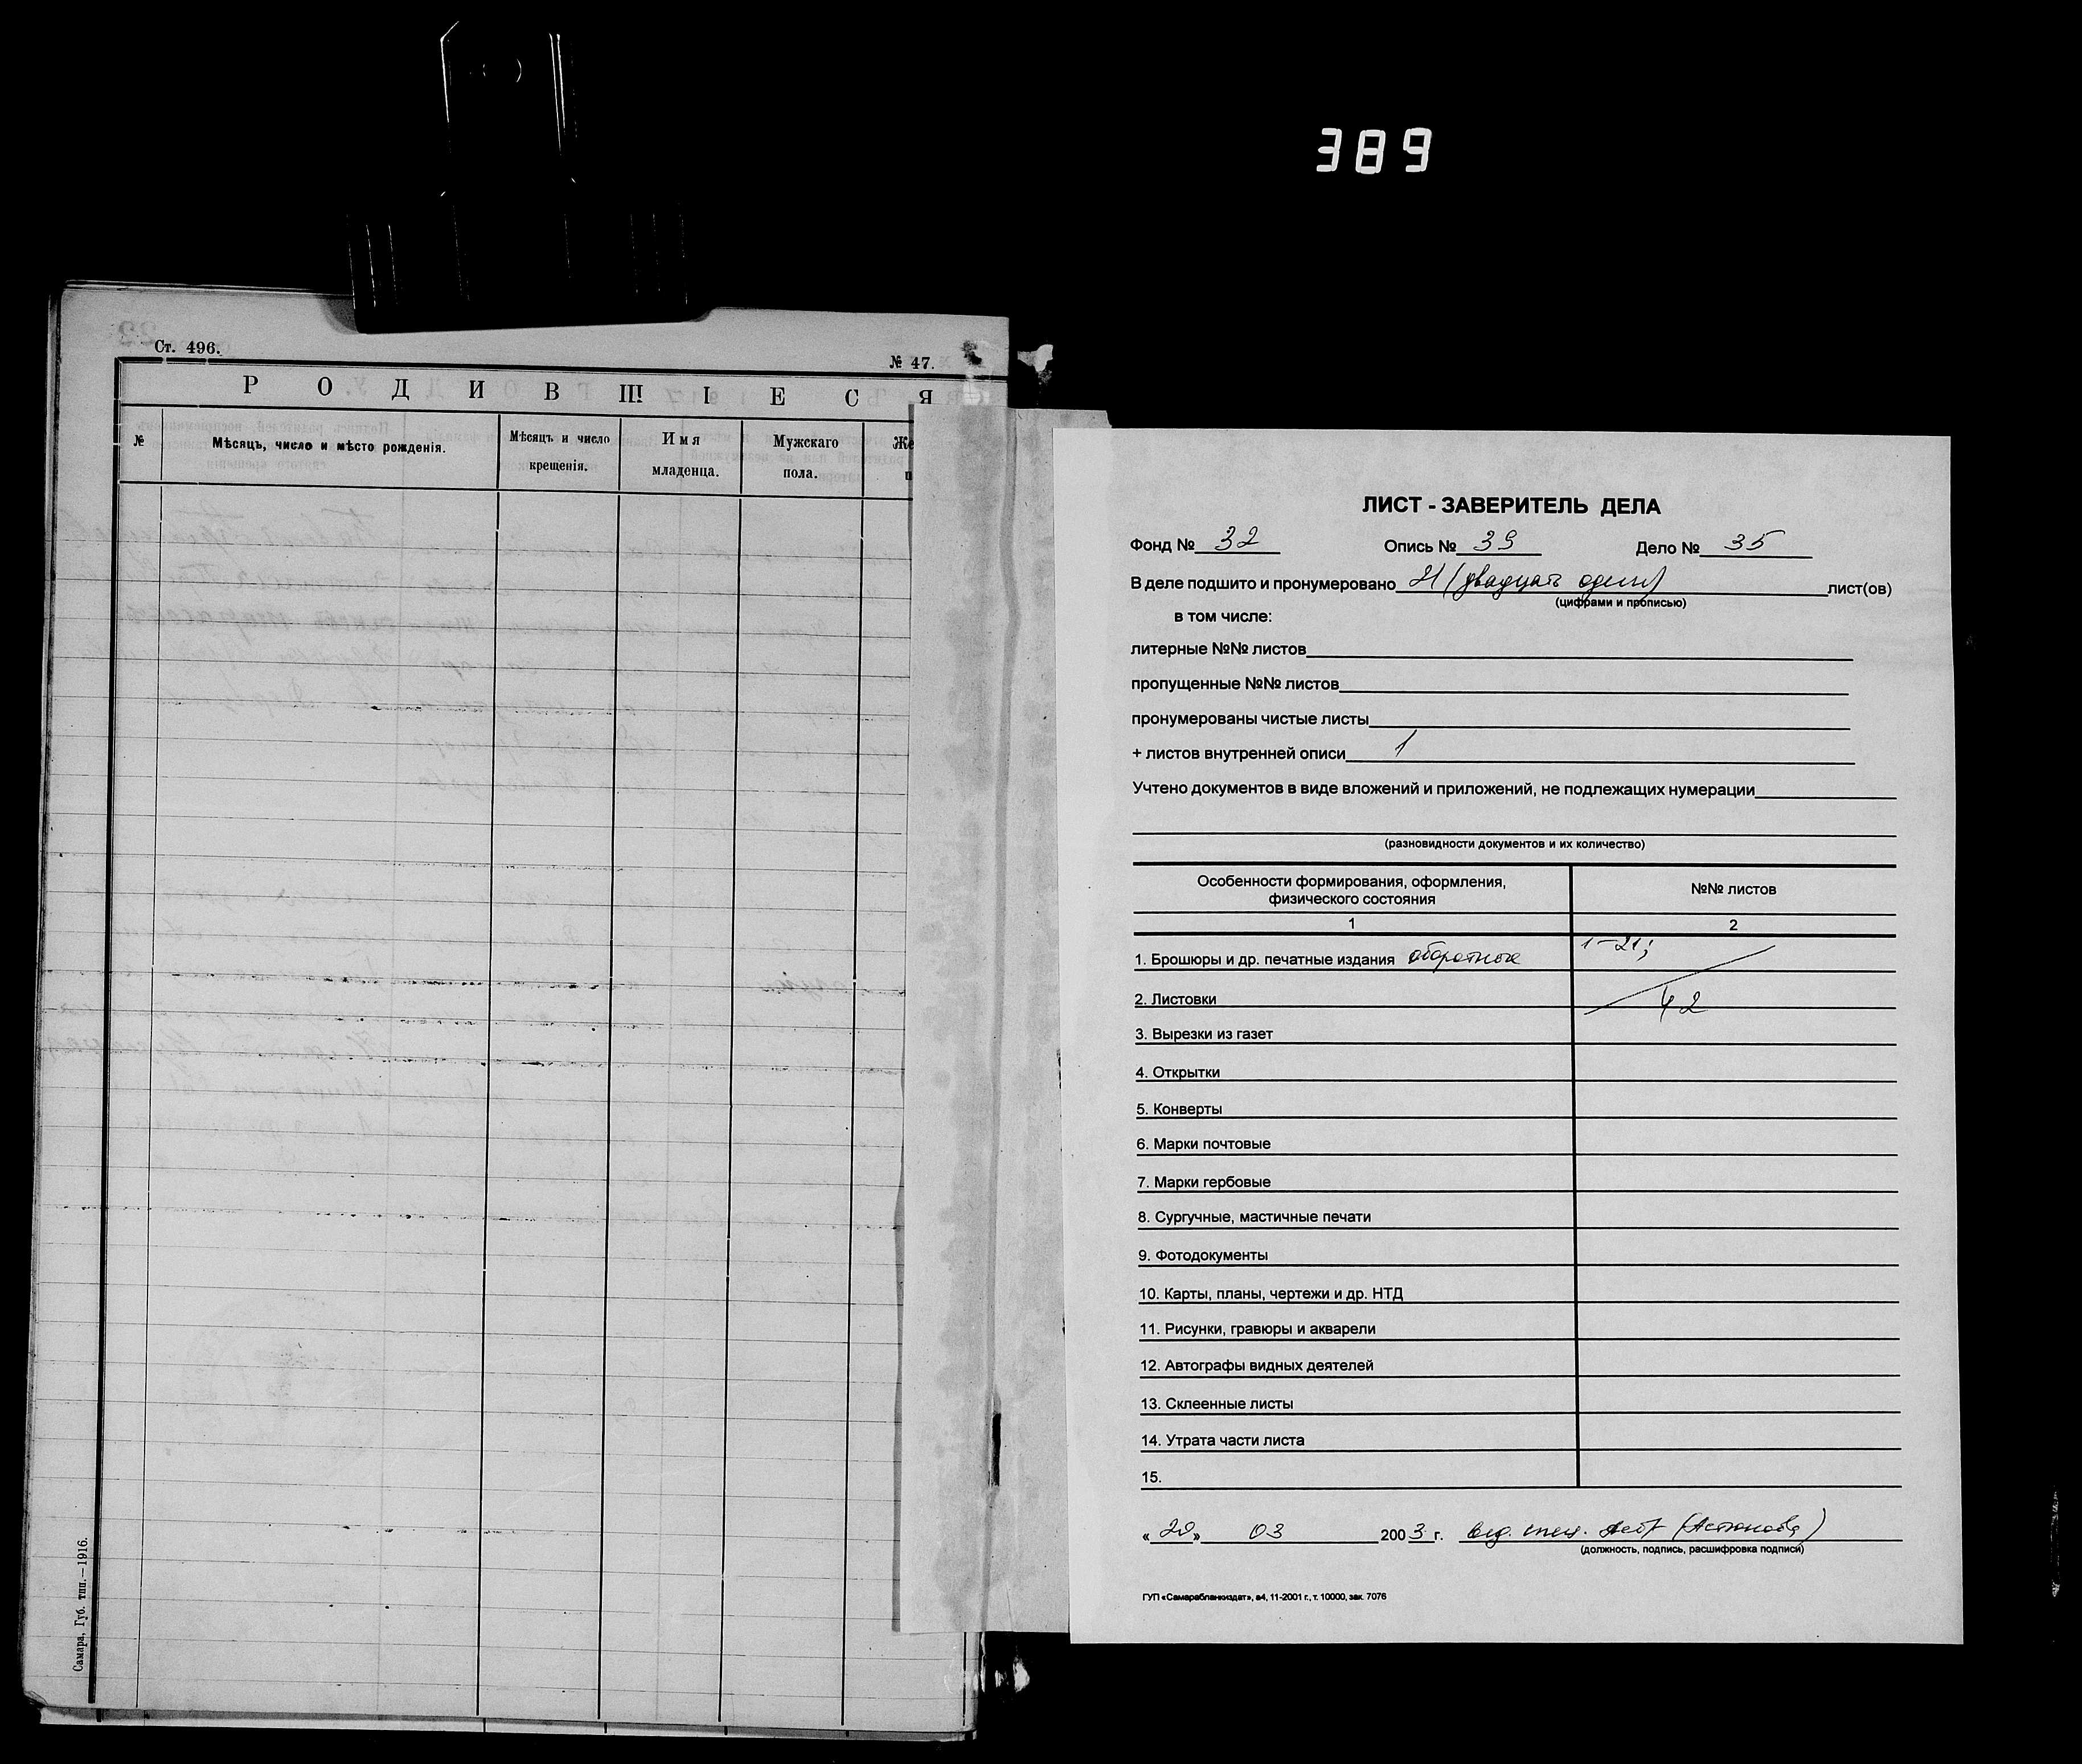 389
Ст. 496.
№ 47.
РОДИВШІЕСЯ
№
Мѣсяцъ, число и мѣсто рожденія.
Мѣсяцъ и число
крещенія.
Имя
младенца.
Мужскаго
пола.
Же
п
Самара, Губ. тип.—1916.
ЛИСТ - ЗАВЕРИТЕЛЬ ДЕЛА
Фонд № 32 Опись № 39 Дело № 35
В деле подшито и пронумеровано 21 (двадцать один) лист(ов)
(цифрами и прописью)
в том числе:
литерные №№ листов
пропущенные №№ листов
пронумерованы чистые листы
+ листов внутренней описи 1
Учтено документов в виде вложений и приложений, не подлежащих нумерации
(разновидности документов и их количество)
Особенности формирования, оформления,
физического состояния
№№ листов
1 2
1. Брошюры и др. печатные издания оборотные 1-21;
2. Листовки 42
3. Вырезки из газет
4. Открытки
5. Конверты
6. Марки почтовые
7. Марки гербовые
8. Сургучные, мастичные печати
9. Фотодокументы
10. Карты, планы, чертежи и др. НТД
11. Рисунки, гравюры и акварели
12. Автографы видных деятелей
13. Склеенные листы
14. Утрата части листа
15.
«20» 03 2003 г. вед. спец.
(должность, подпись, расшифровка подписи)
ГУП «Самарабланкиздат», а4, 11-2001 г., т. 10000, зак. 7076